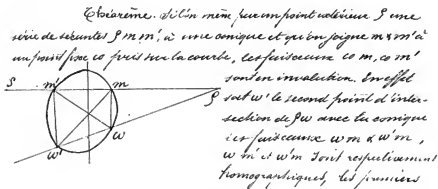 Théorème. Si l'on mène par un point extérieur ρ une
série de sécantes ρ m m', à une conique et qu'on joigne m & m' à
un point fixe ω pris sur la courbe, les faisceaux ω m, ω m'
sont en involution. En effet
soit ω' le second point d'inter-
section de ρω avec la conique
les faisceaux ω m & ω' m,
ω m' et ω' m sont respectivement
homographiques, les premiers
ρ m' m ρ
ω
ω'